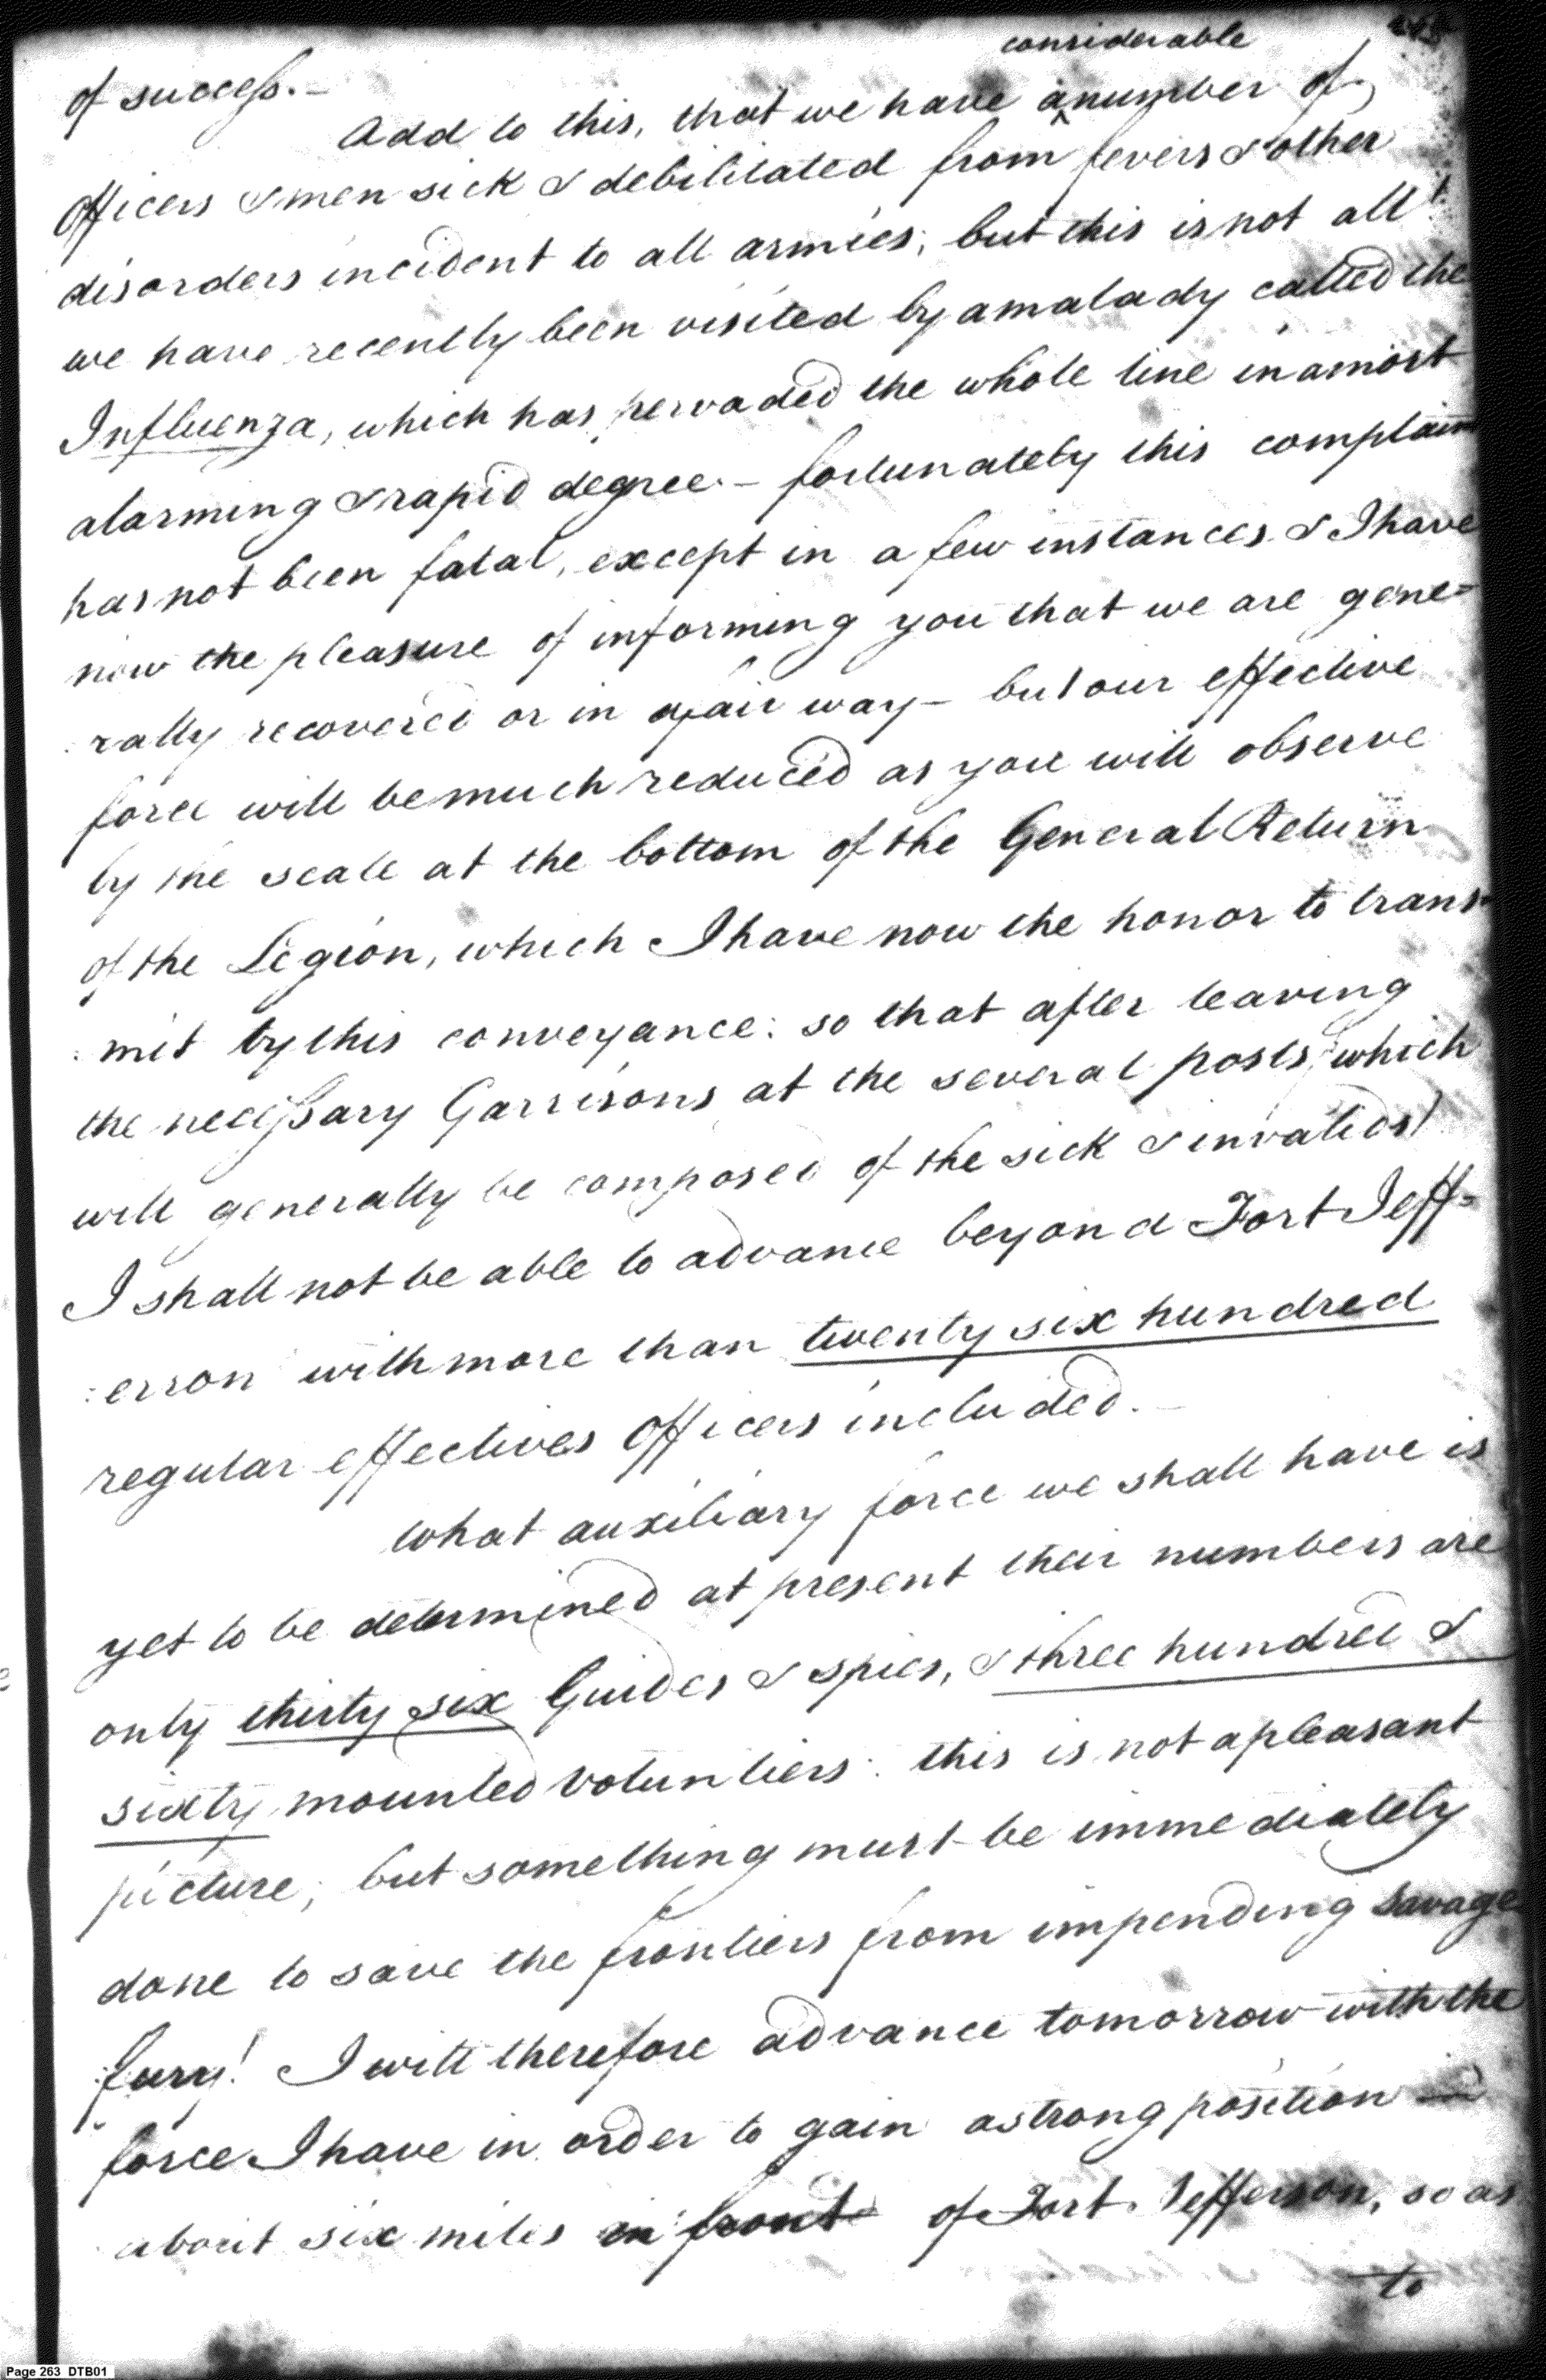 of success. –
considerable
Add to this, that we have a ^ number of
officers & men sick & debilitated from fevers & other
disorders incident to all armies; but this is not all!
we have recently been visited by a malady called the
Influenza, which has pervaded the whole line in a most
alarming & rapid degree – fortunately this complaint
has not been fatal, except in a few instances & I have
now the pleasure of informing you that we are gene=
:rally recovered or in a fair way – but our effective
force will be much reduced as you will observe
by the scale at the bottom of the General Return
of the Legion, which I have now the honor to trans=
:mit by this conveyance: so that after leaving
the necessary Garrisons at the several posts, which
will generally be composed of the sick & invalids)
I shall not be able to advance beyond Fort Jeff=
:erron with more than twenty six hundred
regular effectives Officers included. –
What auxiliary force we shall have is
yet to be determined at present their numbers are
only thirty six Guides & spies, & three hundred &
sixty mounted Voluntiers: this is not a pleasant
picture; but something must be immediately
done to save the frontiers from impending savage
fury! I will therefore advance tomorrow with the
force I have in order to gain a strong position –
about six miles in front of Fort Jefferson, so as
to
Page 263 DTB01